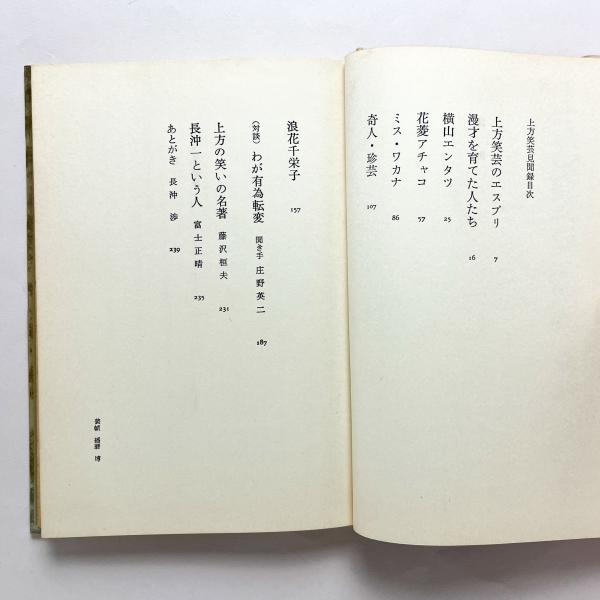 上方笑芸見聞録目次
上方笑芸のエスプリ 7
漫才を育てた人たち 16
横山エンタツ 25
花菱アチャコ 57
ミス・ワカナ 86
奇人・珍芸 107
浪花千栄子 157
〈対談〉わが有為転変 聞き手 庄野英二 187
上方の笑いの名著 藤沢桓夫 231
長沖一という人 富士正晴 235
あとがき 長沖渉 239
装幀 播磨 博